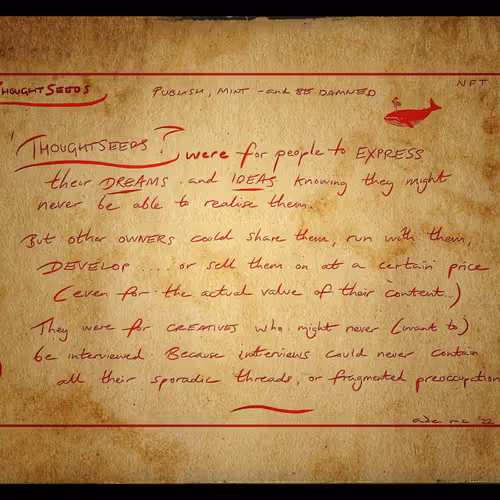 THOUGHTSEEDS PUBLISH, MINT - and BE DAMNED NFT
'THOUGHTSEEDS'? were for people to EXPRESS
their DREAMS and IDEAS knowing they might
never be able to realise them.
But other OWNERS could share them, run with them,
DEVELOP .... or sell them on at a certain price
(even for the actual value of their content..)
They were for CREATIVES who might never (want to)
be interviewed. Because interviews could never contain
all their sporadic threads, or fragmented preoccupation
ade mc '22